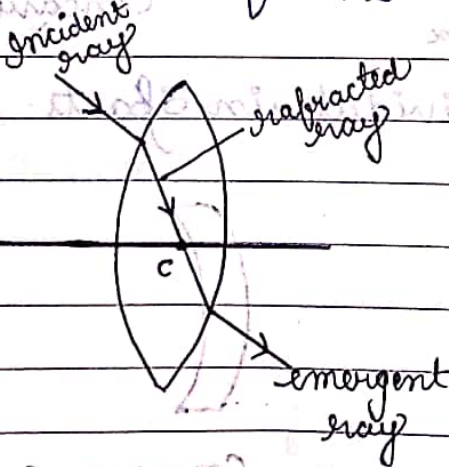 Incident
ray
rafracted
ray
C
emergent
ray